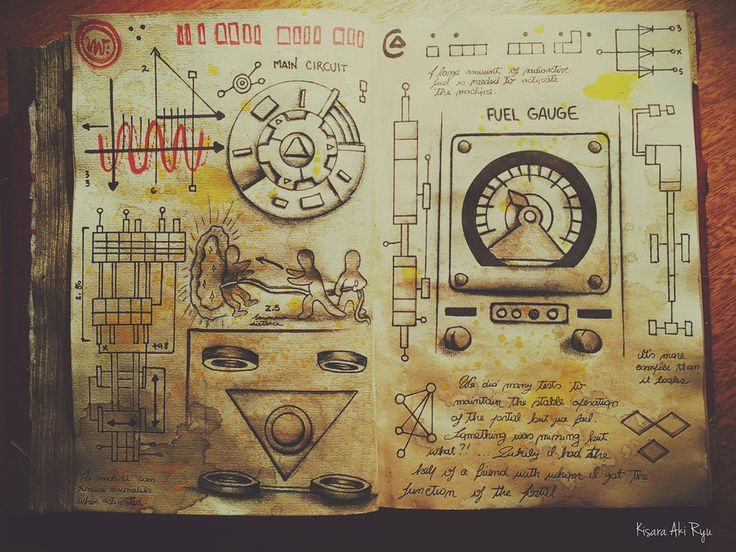 MAIN CIRCUIT
2
3
3
6
2.5
minimum
distance
+98
machine can
produce anomalies
when activated.
A large amount of radioactive
fuel is needed to activate
the machine.
3
x
5
FUEL GAUGE
It's more
complex than
it looks
We did many tests to
maintain the stable operation
of the portal but we fail.
Something was missing but
what?! ... Luckily I had the
help of a friend with whom I got the
function of the portal...
Kisara Aki Ryu